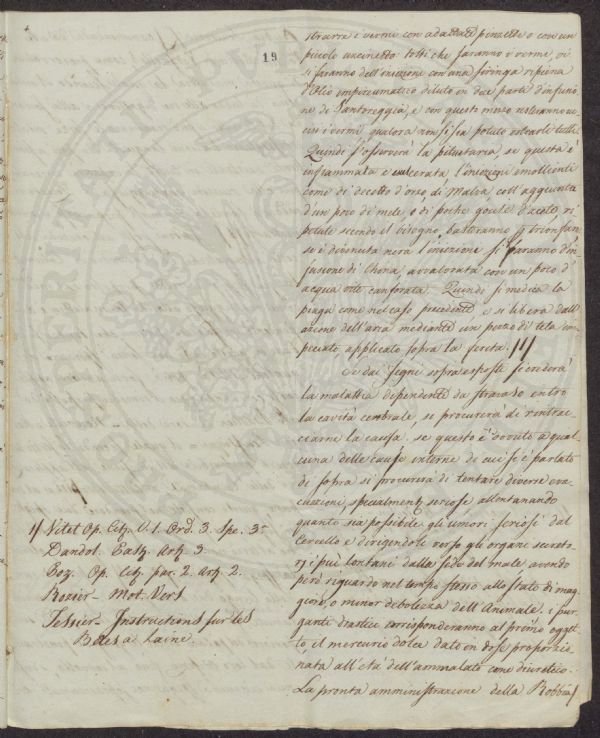 19
strarre i vermi con adattad pinzette o con un
piccolo uncinetto tosti che saranno i vermi, vi
si faranno dell'iniezione con una siringa ripiena
d'Olio empireumatico diluto in due parti d'infusio-
ne di Santoreggia, e con questo mezzo resteranno uc-
cisi i vermi qualora non si sia potuto estrarli tutti
Quindi s'osserverà la pituitaria, se questa è
infiammata e esulcerata l'iniezioni emollienti
come di decotto d'orzo, di Malva, coll'aggiunta
d'un poco di mele, o di poche goccie d'aceto, ri-
petute secondo il bisogno, basteranno
se è divenuta nera l'iniezione si faranno d'in-
fusione di China, avvalorata con un poco d'
acqua canforata. Quindi si medica la
piaga come nel caso precedente e si libera dall'
azzione dell'aria mediante un pezzo di tela im-
peciato applicato sopra la ferita. 1/
Se dai segni sopra esposti si crederà
la malattia dipendente da stravaso entro
la cavità cerebrale, se procurerà di rintrac-
ciarne la causa. se questo è dovuto a qual-
cuna delle cause interne di cui si è parlato
di sopra si procurerà di tentare diverse eva-
cuazioni, specialmente seriose allontanando
quanto sia possibile gli umori seriosi dal
Cervello e dirigendoli verso gli organi secreto-
rj i più lontani dalla sede del male avendo
però riguardo nel tempo stesso allo stato di mag-
giore, o minor debolezza dell'Animale. i pur-
ganti drastici corrisponderanno al primo ogget-
to, il mercurio dolce dato in dose proporzio-
nata all'età dell'ammalato come diuretico.
La pronta amministrazione della Robbia
1/ Vitet Op. Cit. V. 1. Ord. 3. Spe. 3.
Dandol. Art. 3
Boz. Op. Cit. par. 2. Art. 2.
Rozier - Mot. Vert
Tessier - Instructions sur les
Bêtes a Laine.